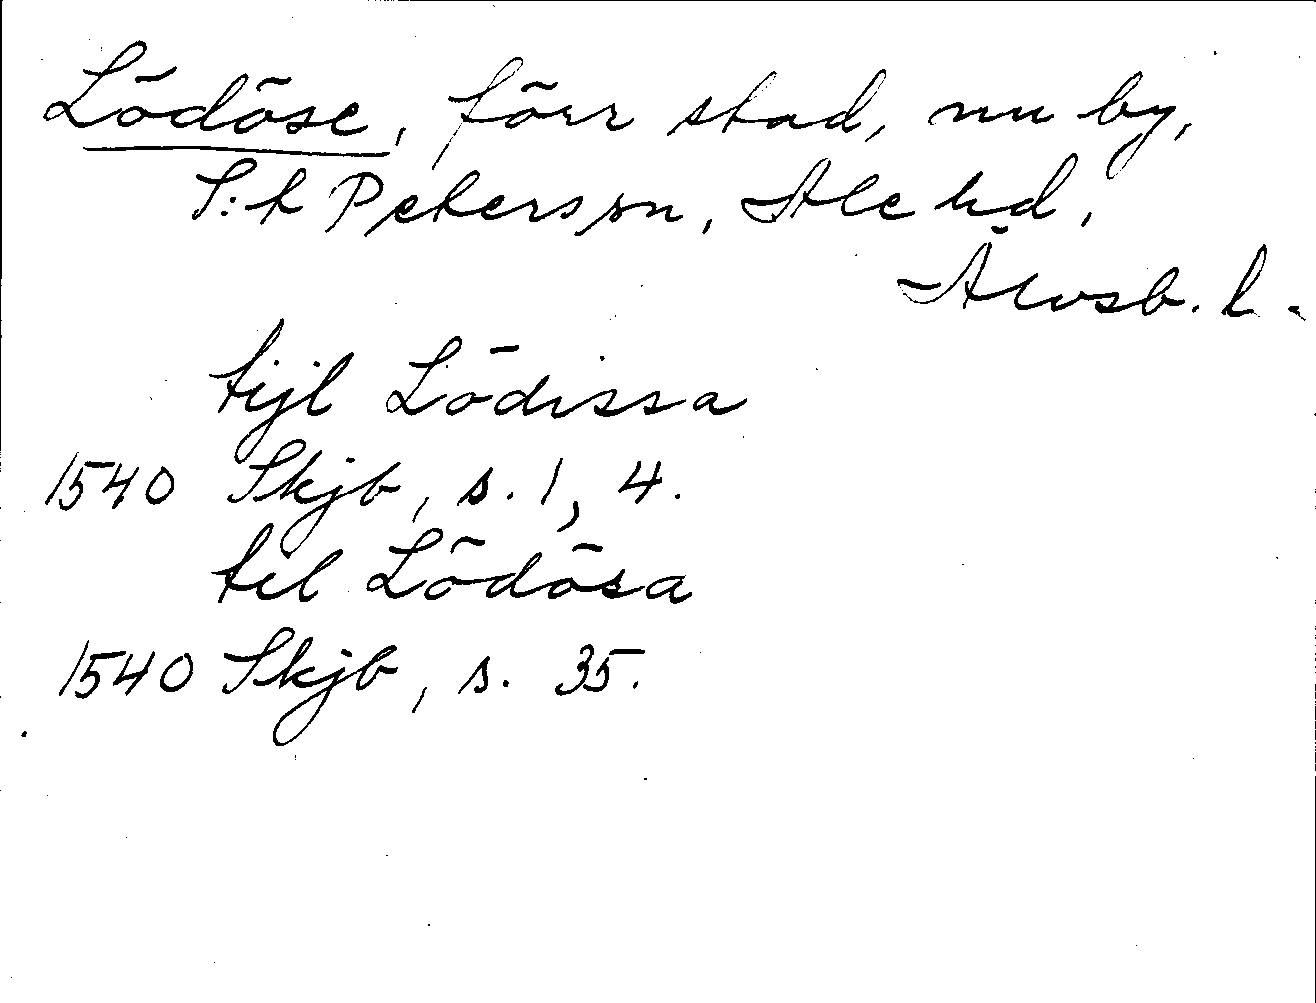 Lödöse, förr stad, nu by,
S:t Peterson, Ale hd,
Älvsb. l.
tijl Lödissa
1540 Skjb, s. 1, 4.
til Lödösa
1540 Skjb, s. 35.